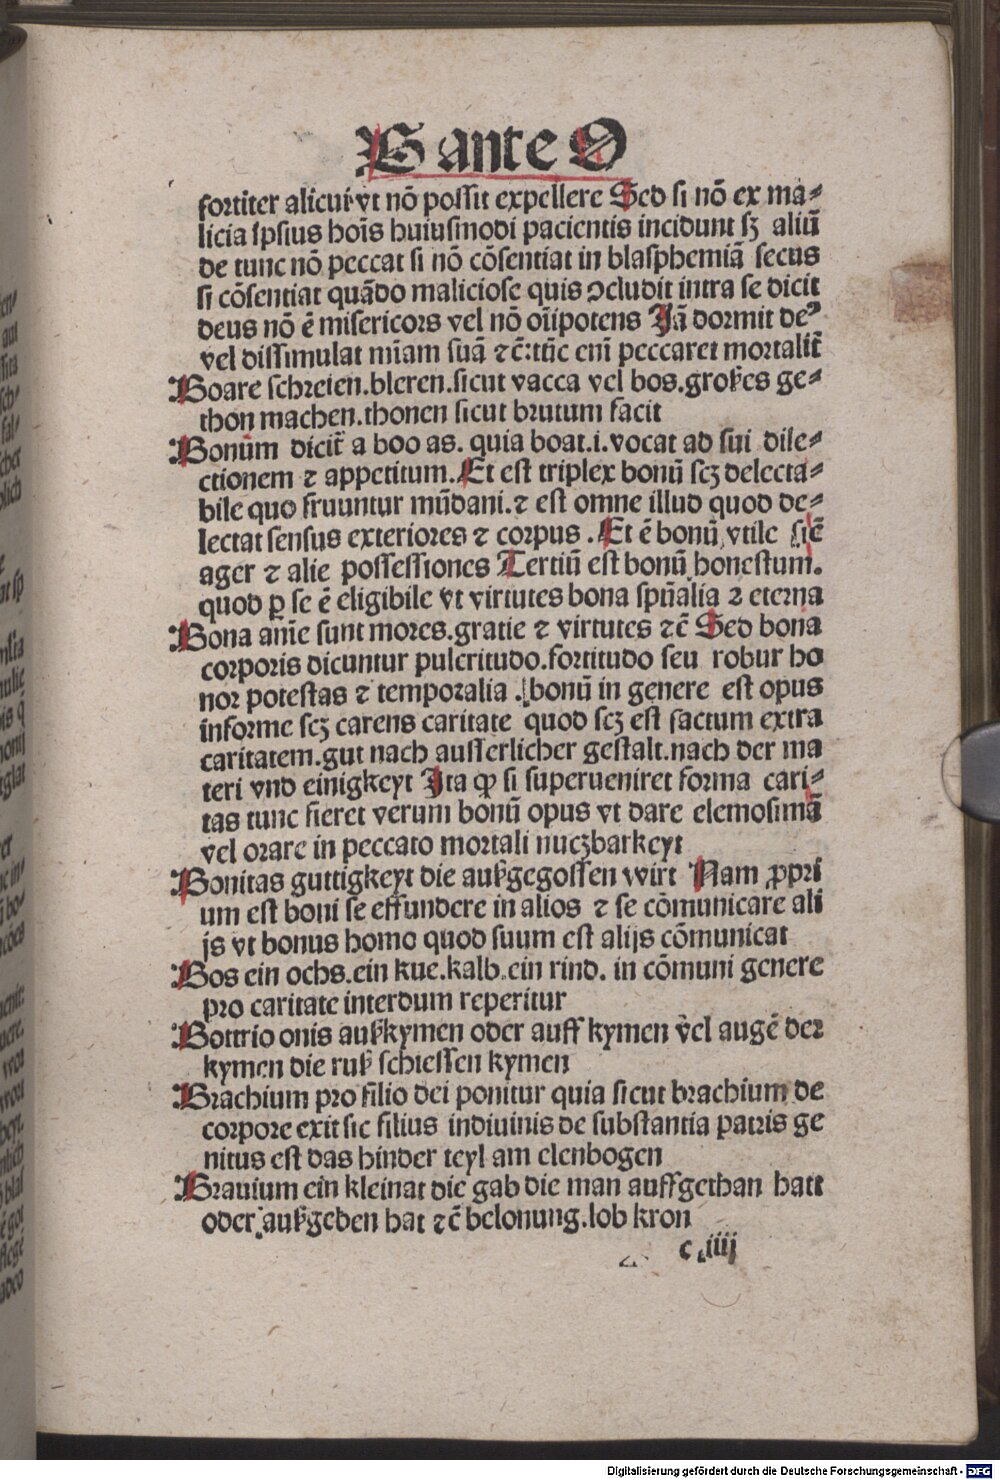 B ante O
fortiter alicui vt nō possit expellere Sed si nō ex ma⸗
licia ipsius hoīs huiusmodi pacientis incidunt sꝫ aliū
de tunc nō peccat si nō cōsentiat in blasphemiā secus
si cōsentiat quādo maliciose quis ↄcludit intra se dicit
deus nō ē misericors vel nō oīpotens Jā dormit deꝰ
vel dissimulat mīam suā ⁊c̄: tūc eni peccaret mortalit̄
Boare schreien.bleren.sicut vacca vel bos.groſzes ge⸗
thon machen.thonen sicut brutum facit
Bonum dicit̄ a boo as. quia boat.i.vocat ad sui dile⸗
ctionem ⁊ appetitum.Et est triplex bonū scꝫ delecta⸗
bile quo fruuntur mūdani.⁊ est omne illud quod de⸗
lectat sensus exteriores ⁊ corpus .Et ē bonū vtile sic̄
ager ⁊ alie possessiones Tertiū est bonū honestum.
quod ꝑ se ē eligibile vt virtutes bona spūalia ⁊ eterna
Bona anīe sunt mores.gratie ⁊ virtutes ⁊c̄ Sed bona
corporis dicuntur pulcritudo.fortitudo seu robur ho
nor potestas ⁊ temporalia .bonū in genere est opus
informe scꝫ carens caritate quod scꝫ est factum extra
caritatem.gut nach ausserlicher gestalt.nach der ma
teri vnd einigkeyt Jta ꝙ si superueniret forma cari⸗
tas tunc fieret verum bonū opus vt dare elemosinā
vel orare in peccato mortali nuczbarkeyt
Bonitas guttigkeyt die auſzgegossen wirt Nam ꝓpri
um est boni se effundere in alios ⁊ se cōmunicare ali
js vt bonus homo quod suum est alijs cōmunicat
Bos ein ochs.ein kue.kalb.ein rind. in cōmuni genere
pro caritate interdum reperitur
Bottrio onis auſzkymen oder auff kymen vel augē der
kymen die ruſz schiessen kymen
Brachium pro filio dei ponitur quia sicut brachium de
corpore exit sic filius indiuinis de substantia patris ge
nitus est das hinder teyl am elenbogen
Brauium ein kleinat die gab die man auffgethan hatt
oder auſzgeben hat ⁊c̄ belonung.lob kron
c iiij
Digitalisierung gefördert durch die Deutsche Forschungsgemeinschaft - DFG